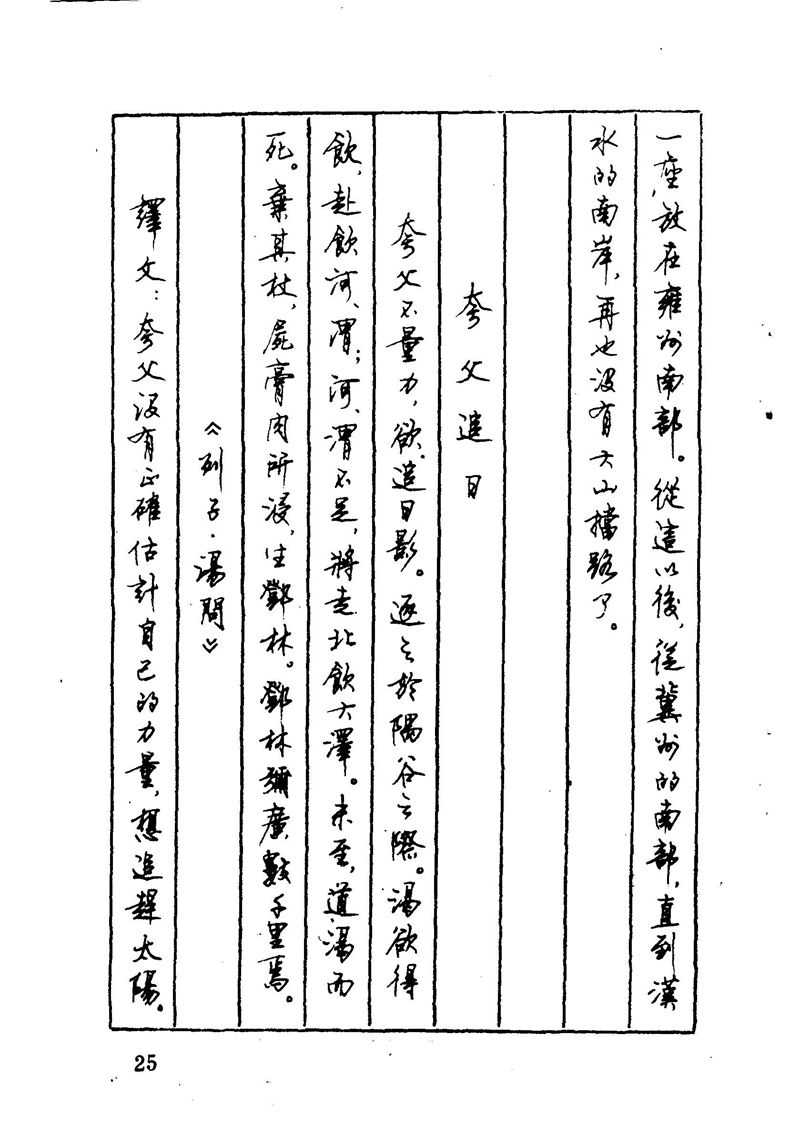 一座，放在雍州南部。從這以後，從冀州的南部，直到漢
水的南岸，再也沒有大山擋路了。
夸父追日
夸父不量力，欲追日影。逐之於隅谷之際。渴欲得
飲，赴飲河、渭；河、渭不足，將走北飲大澤。未至，道渴而
死。棄其杖，屍膏肉所浸，生鄧林。鄧林彌廣數千里焉。
《列子·湯問》
譯文：夸父沒有正確估計自己的力量，想追趕太陽。
25